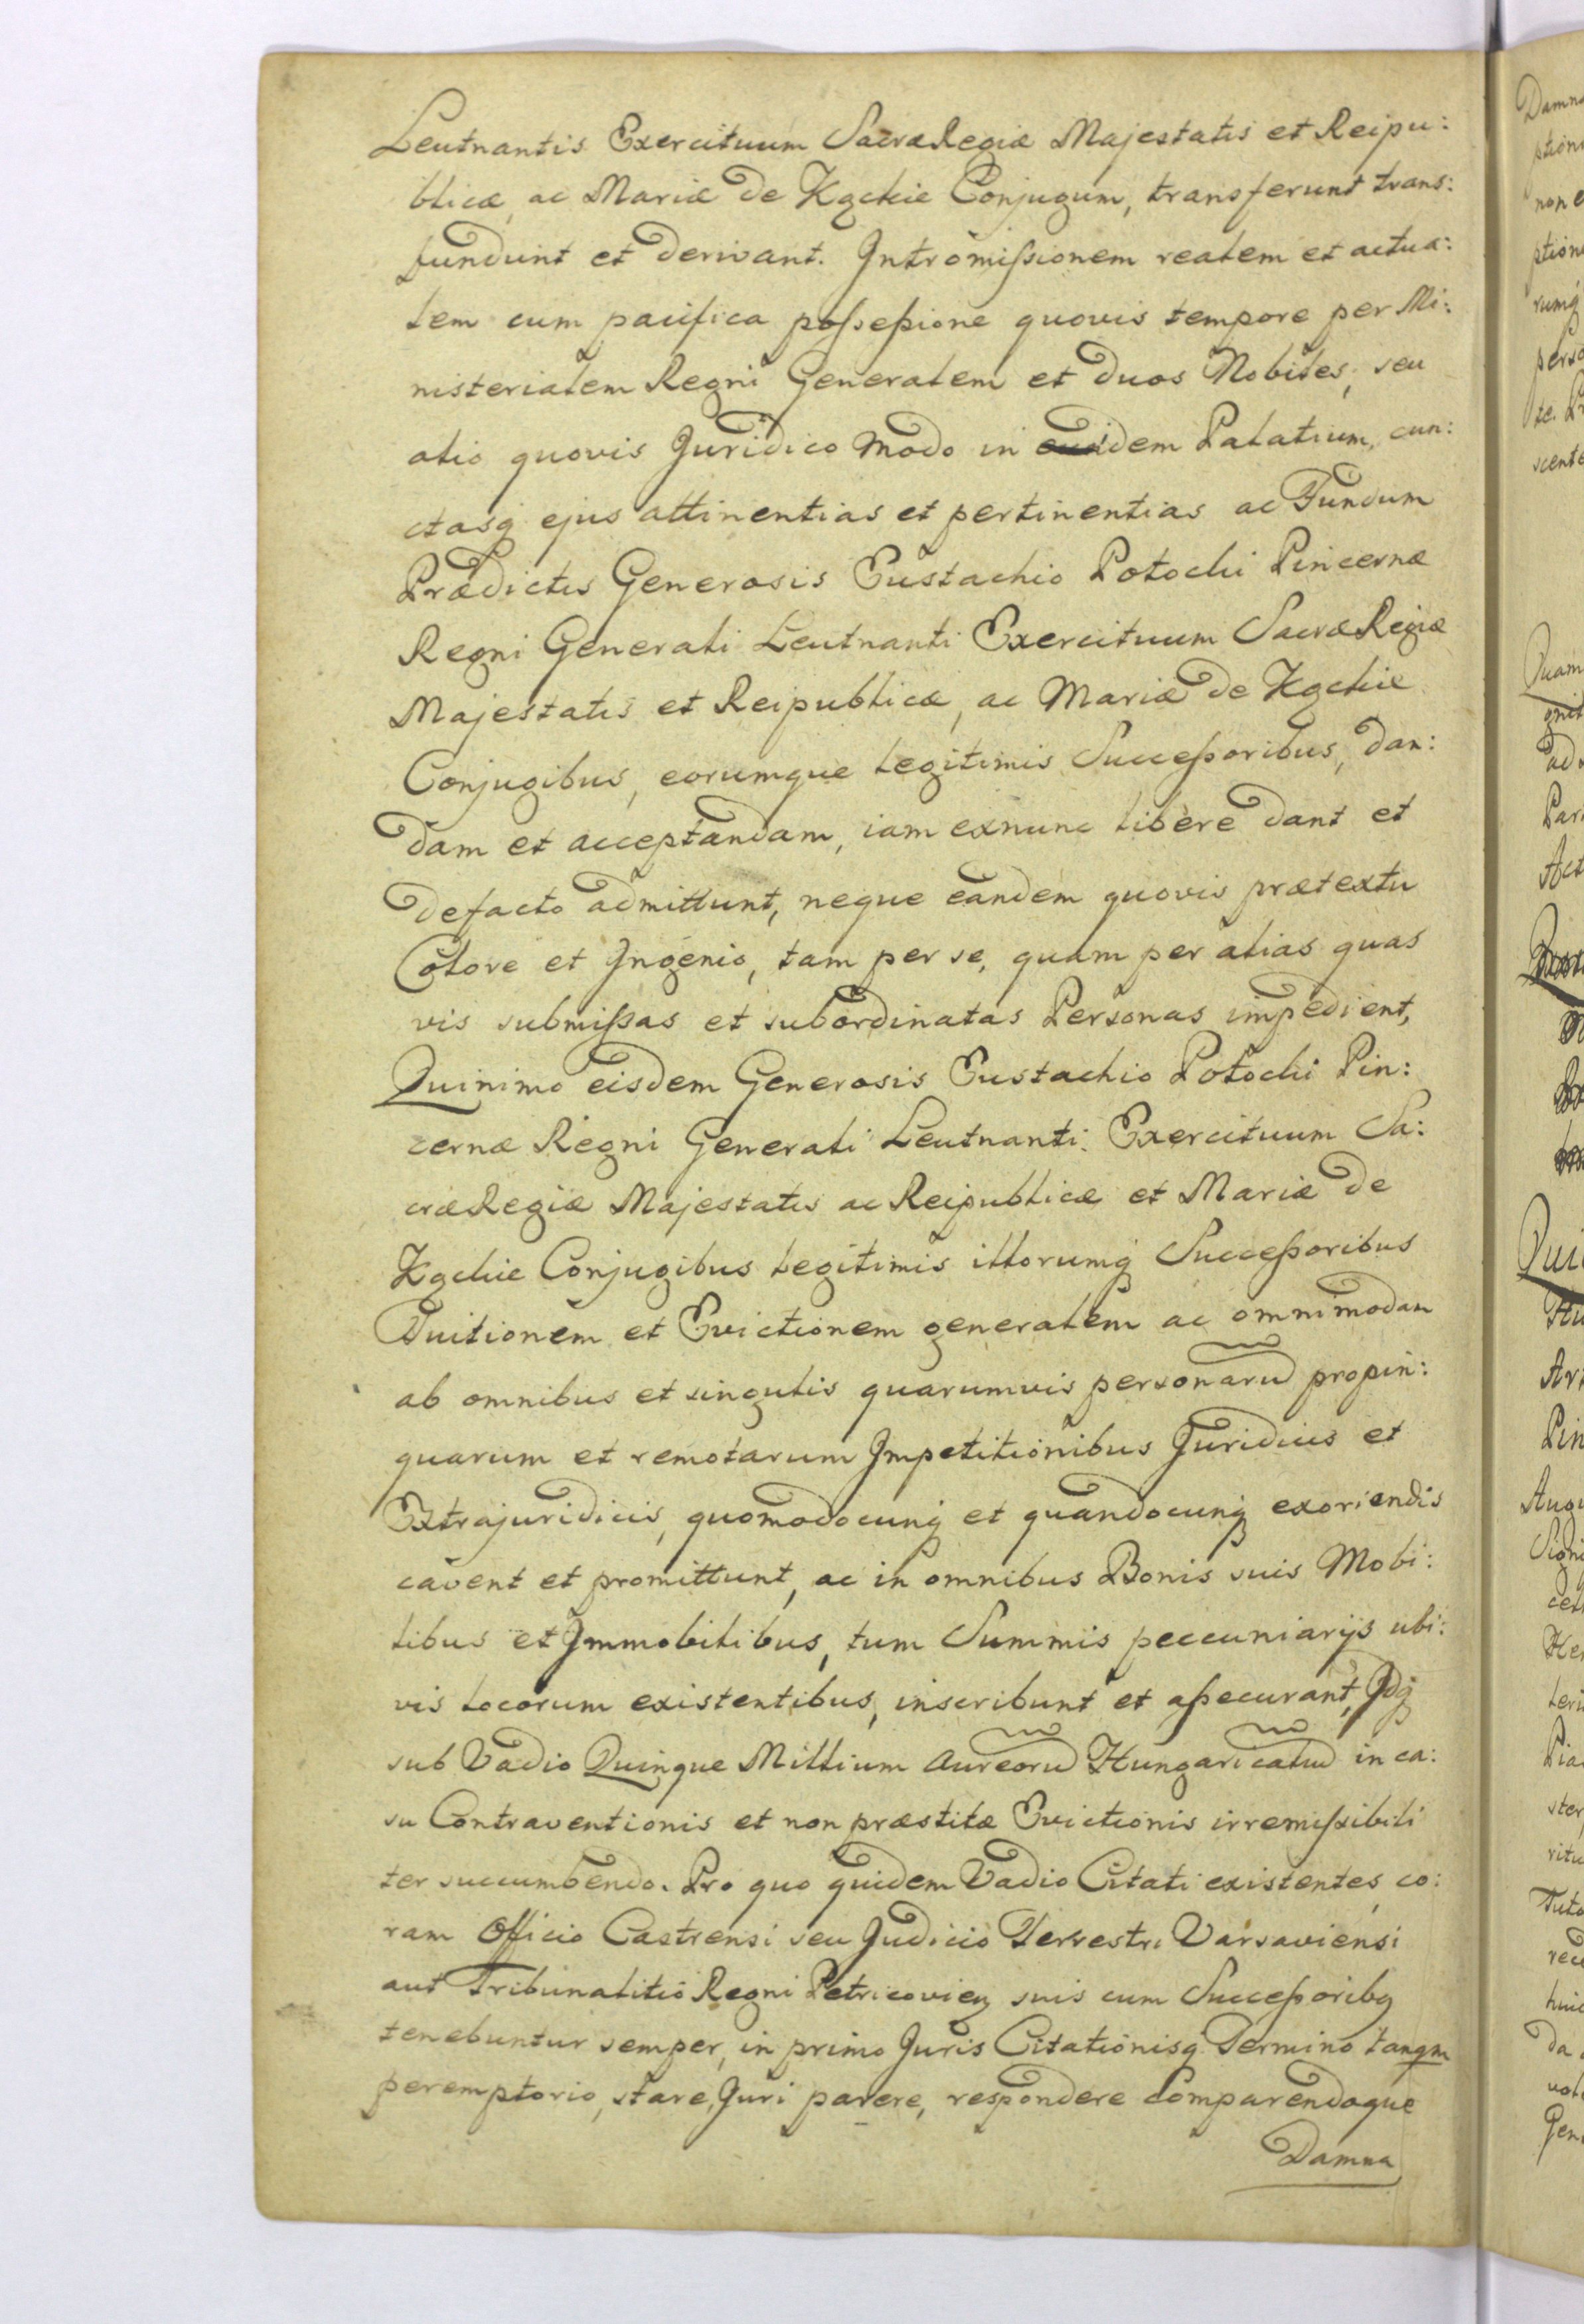 Leutnantis Exercituum Sacræ Regiæ Majestatis et Reipu:
blicæ, ac Mariæ de Kątckie Conjugum, transferunt trans:
fundunt et derivant. Intromissionem realem et actua:
lem cum pacifica possessione quovis tempore per Mi:
nisterialem Regni Generalem et duos Nobiles, seu
alio quovis Juridico modo in idem Palatium, cun:
ctasq ejus attinentias et pertinentias ac Fundum
Prædictis Generosis Eustachio Potocki Pincernæ
Regni Generali Leutnanti Exercituum Sacræ Regiæ
Majestatis et Reipublicæ, ac Mariæ de Kątckie
Conjugibus, eorumque legitimis Successoribus, dan:
dam et acceptandam, iam exnunc libere dant et
defacto admittunt, neque eandem quovis prætextu
Colore et Ingenio, tam per se, quam per alias quas
vis submissas et subordinatas Personas impedient,
Quinimo eisdem Generosis Eustachio Potocki Pin:
cernæ Regni Generali Leutnanti Exercituum Sa:
cræ Regiæ Majestatis ac Reipublicæ et Mariæ de
Kątckie Conjugibus legitimis illorumq Successoribus
Tuitionem et Evictionem generalem ac omnimodam
ab omnibus et singulis quarumvis personaru propin:
quarum et remotarum Impetitionibus Juridicis et
Extrajuridicis, quomodocunq et quandocunq exoriendis
cavent et promittunt, ac in omnibus Bonis suis Mobi:
libus et Immobilibus, tum Summis peccuniarijs ubi:
vis locorum existentibus, inscribunt et assecurant, Idq
sub Vadio Quinque Millium Aureoru Hungaricaliu in ca:
su Contraventionis et non præstitæ Evictionis irremissibili
ter succumbendo. Pro quo quidem Vadio Citati existentes, co:
ram Officio Castrensi seu Judicio Terrestri Varsaviensi
aut Tribunalitio Regni Petricovien suis cum Successoribq
tenebuntur semper, in primo Juris Citationisq Termino tanqm
peremptorio, stare, Juri parere, respondere Comparendoque
Damna